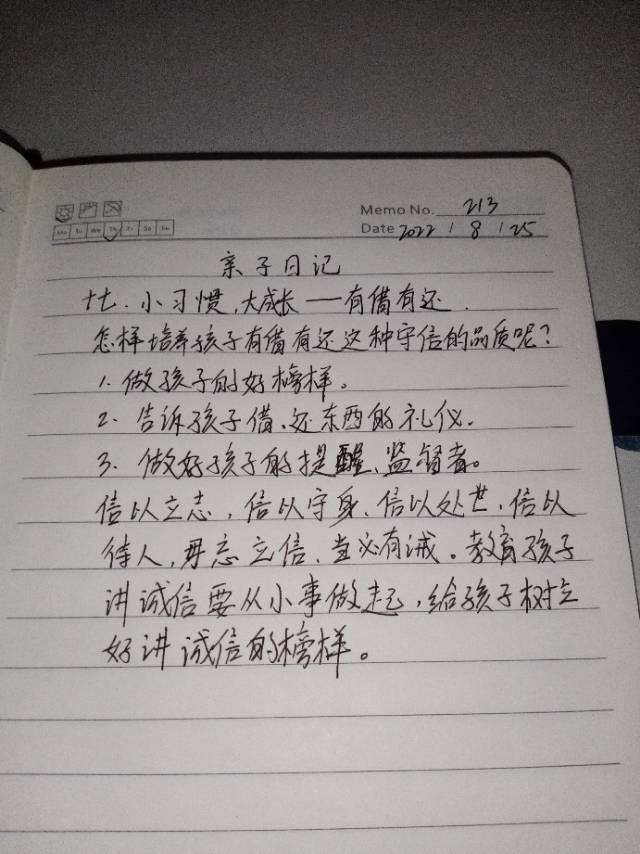 Memo No. 213
Mo Tu We Th Fr Sa Su
Date 2022 / 8 / 25
亲子日记
十七.小习惯,大成长——有借有还.
怎样培养孩子有借有还这种守信的品质呢?
1.做孩子的好榜样。
2.告诉孩子借、还东西的礼仪.
3.做好孩子的提醒、监督者。
信以立志,信以守身、信以处世,信以
待人,毋忘立信、当必有诚。教育孩子
讲诚信要从小事做起,给孩子树立
好讲诚信的榜样。